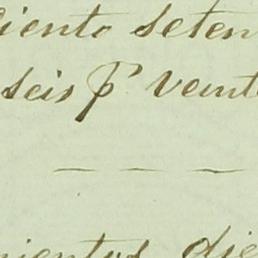 ciento seten
seis ps veint
— — —
ientos die